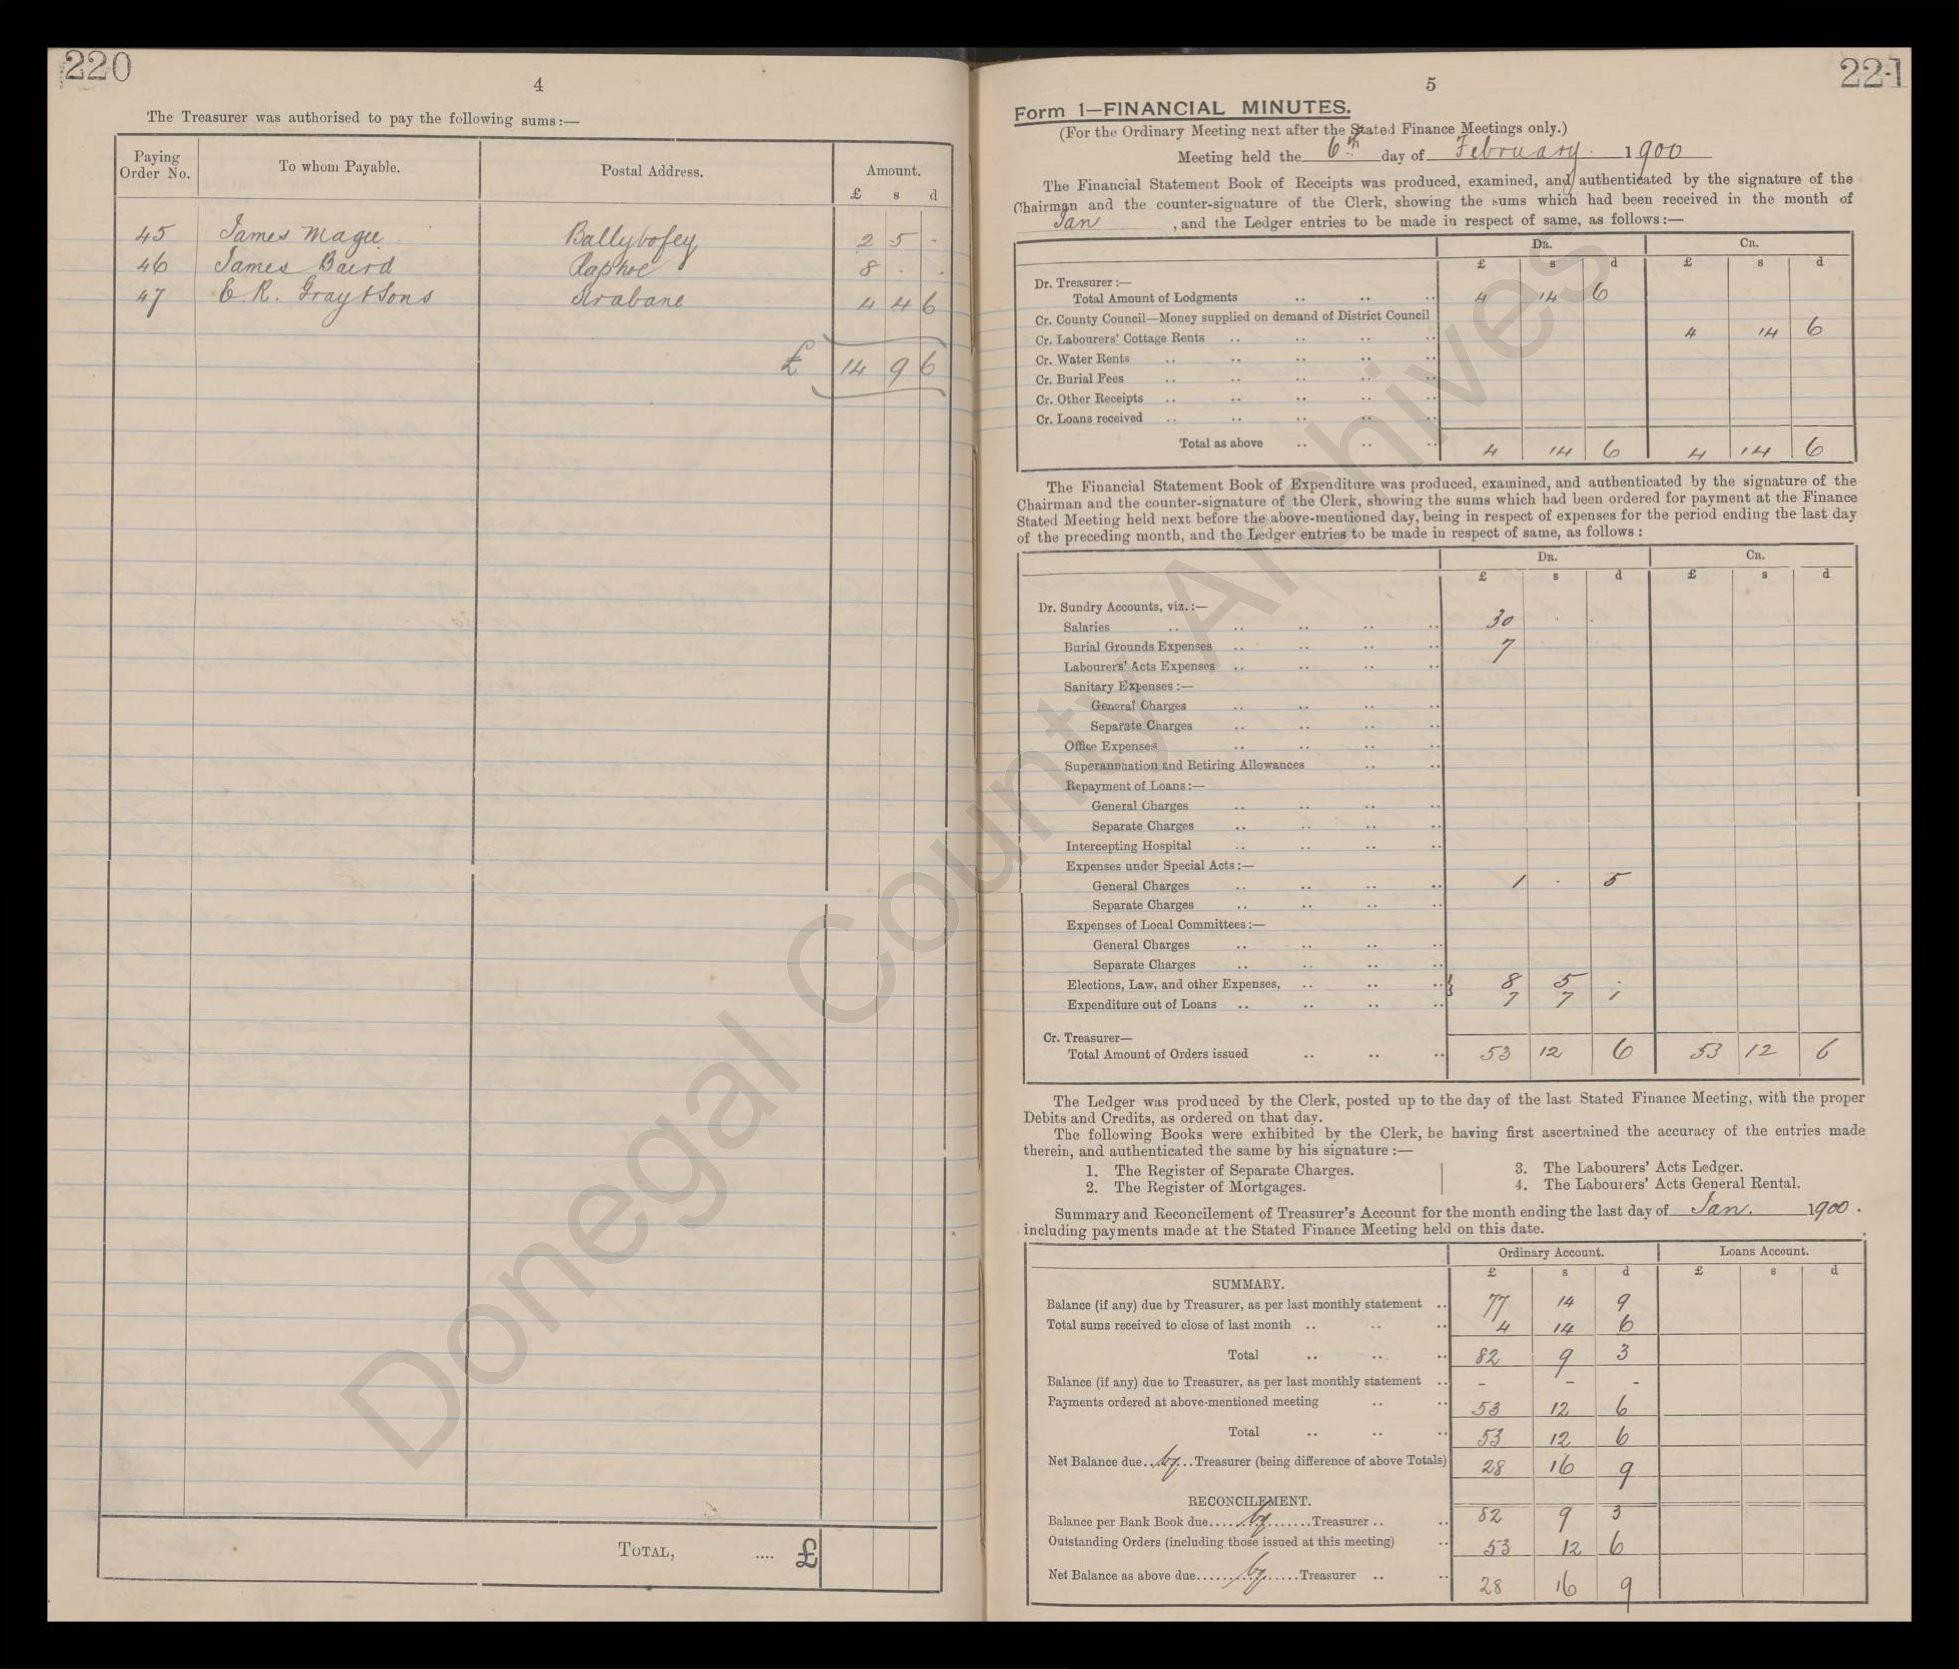 220
4
The Treasurer was authorised to pay the following sums:—
Paying Order No. To whom Payable. Postal Address. Amount.
£ s d
45 James Magee Ballybofey 2 5 -
46 James Baird Raphoe 8 . .
47 E. R. Gray & Sons Strabane 4 4 6
£ 14 9 6
TOTAL, .... £
221
5
Form 1—FINANCIAL MINUTES.
(For the Ordinary Meeting next after the Stated Finance Meetings only.)
Meeting held the 6th day of February 1900
The Financial Statement Book of Receipts was produced, examined, and authenticated by the signature of the
Chairman and the counter-signature of the Clerk, showing the sums which had been received in the month of
Jan , and the Ledger entries to be made in respect of same, as follows:—
DR. CR.
£ s d £ s d
Dr. Treasurer:—
Total Amount of Lodgments .. .. .. 4 14 6
Cr. County Council—Money supplied on demand of District Council
Cr. Labourers' Cottage Rents .. .. .. .. 4 14 6
Cr. Water Rents .. .. .. .. ..
Cr. Burial Fees .. .. .. .. ..
Cr. Other Receipts .. .. .. .. ..
Cr. Loans received .. .. .. .. ..
Total as above .. .. .. 4 14 6 4 14 6
The Financial Statement Book of Expenditure was produced, examined, and authenticated by the signature of the
Chairman and the counter-signature of the Clerk, showing the sums which had been ordered for payment at the Finance
Stated Meeting held next before the above-mentioned day, being in respect of expenses for the period ending the last day
of the preceding month, and the Ledger entries to be made in respect of same, as follows:
DR. CR.
£ s d £ s d
Dr. Sundry Accounts, viz.:—
Salaries .. .. .. .. .. 30 . .
Burial Grounds Expenses .. .. .. .. 7
Labourers' Acts Expenses .. .. .. ..
Sanitary Expenses:—
General Charges .. .. .. ..
Separate Charges .. .. .. ..
Office Expenses .. .. .. ..
Superannuation and Retiring Allowances .. ..
Repayment of Loans:—
General Charges .. .. .. ..
Separate Charges .. .. .. ..
Intercepting Hospital .. .. .. ..
Expenses under Special Acts:—
General Charges .. .. .. .. 1 . 5
Separate Charges .. .. .. ..
Expenses of Local Committees:—
General Charges .. .. .. ..
Separate Charges .. .. .. ..
Elections, Law, and other Expenses, .. .. .. 8 5 .
Expenditure out of Loans .. .. .. .. 7 7 1
Cr. Treasurer—
Total Amount of Orders issued .. .. .. 53 12 6 53 12 6
The Ledger was produced by the Clerk, posted up to the day of the last Stated Finance Meeting, with the proper
Debits and Credits, as ordered on that day.
The following Books were exhibited by the Clerk, he having first ascertained the accuracy of the entries made
therein, and authenticated the same by his signature:—
1. The Register of Separate Charges. 3. The Labourers' Acts Ledger.
2. The Register of Mortgages. 4. The Labourers' Acts General Rental.
Summary and Reconcilement of Treasurer's Account for the month ending the last day of Jan. 1900.
including payments made at the Stated Finance Meeting held on this date.
Ordinary Account. Loans Account.
£ s d £ s d
SUMMARY.
Balance (if any) due by Treasurer, as per last monthly statement .. 77 14 9
Total sums received to close of last month .. .. .. 4 14 6
Total .. .. .. 82 9 3
Balance (if any) due to Treasurer, as per last monthly statement .. - - -
Payments ordered at above-mentioned meeting .. .. 53 12 6
Total .. .. .. 53 12 6
Net Balance due..by..Treasurer (being difference of above Totals) 28 16 9
RECONCILEMENT.
Balance per Bank Book due.....by.......Treasurer .. .. 82 9 3
Outstanding Orders (including those issued at this meeting) .. 53 12 6
Net Balance as above due.......by......Treasurer .. .. 28 16 9
Donegal County Archives